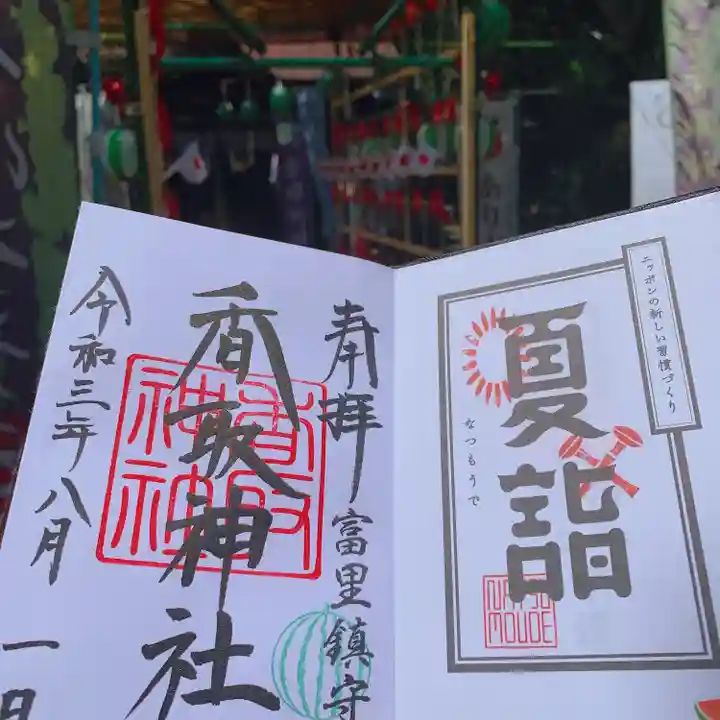 奉拝
富里鎮守
香取神社
香取神社
令和三年八月
一日
ニッポンの新しい習慣づくり
夏詣
なつもうで
NATSU
MOUDE